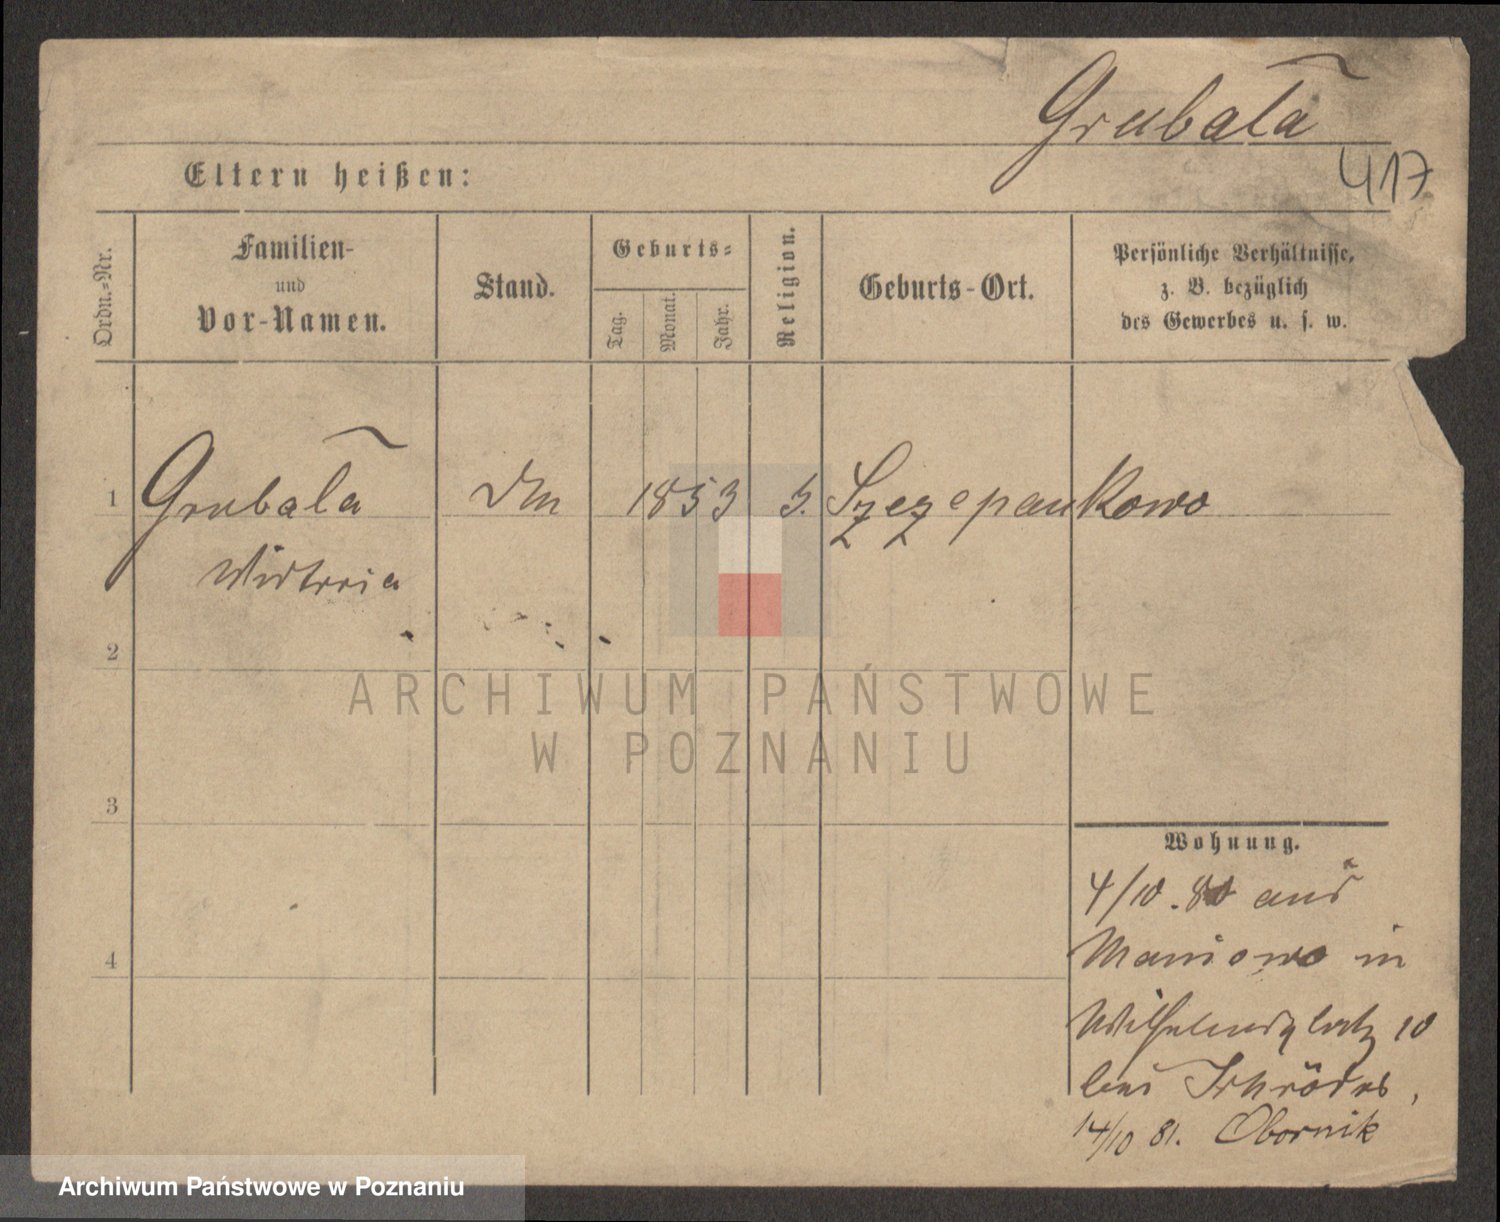 Grubała
417
Eltern heißen:
Ordn.-Nr.
Familien-
und
Vor-Namen.
Stand.
Geburts-
Tag.
Monat.
Jahr.
Religion.
Geburts-Ort.
Persönliche Verhältnisse,
z. B. bezüglich
des Gewerbes u. s. w.
1 Grubała 1853 Szczepankowo
Wiktoria
2
ARCHIWUM PAŃSTWOWE
W POZNANIU
3
Wohnung.
4/10. 80 aus
Maniowo in
4
Wilhelmsplatz 10
bei Schröder,
14/10 81. Obornik
Archiwum Państwowe w Poznaniu